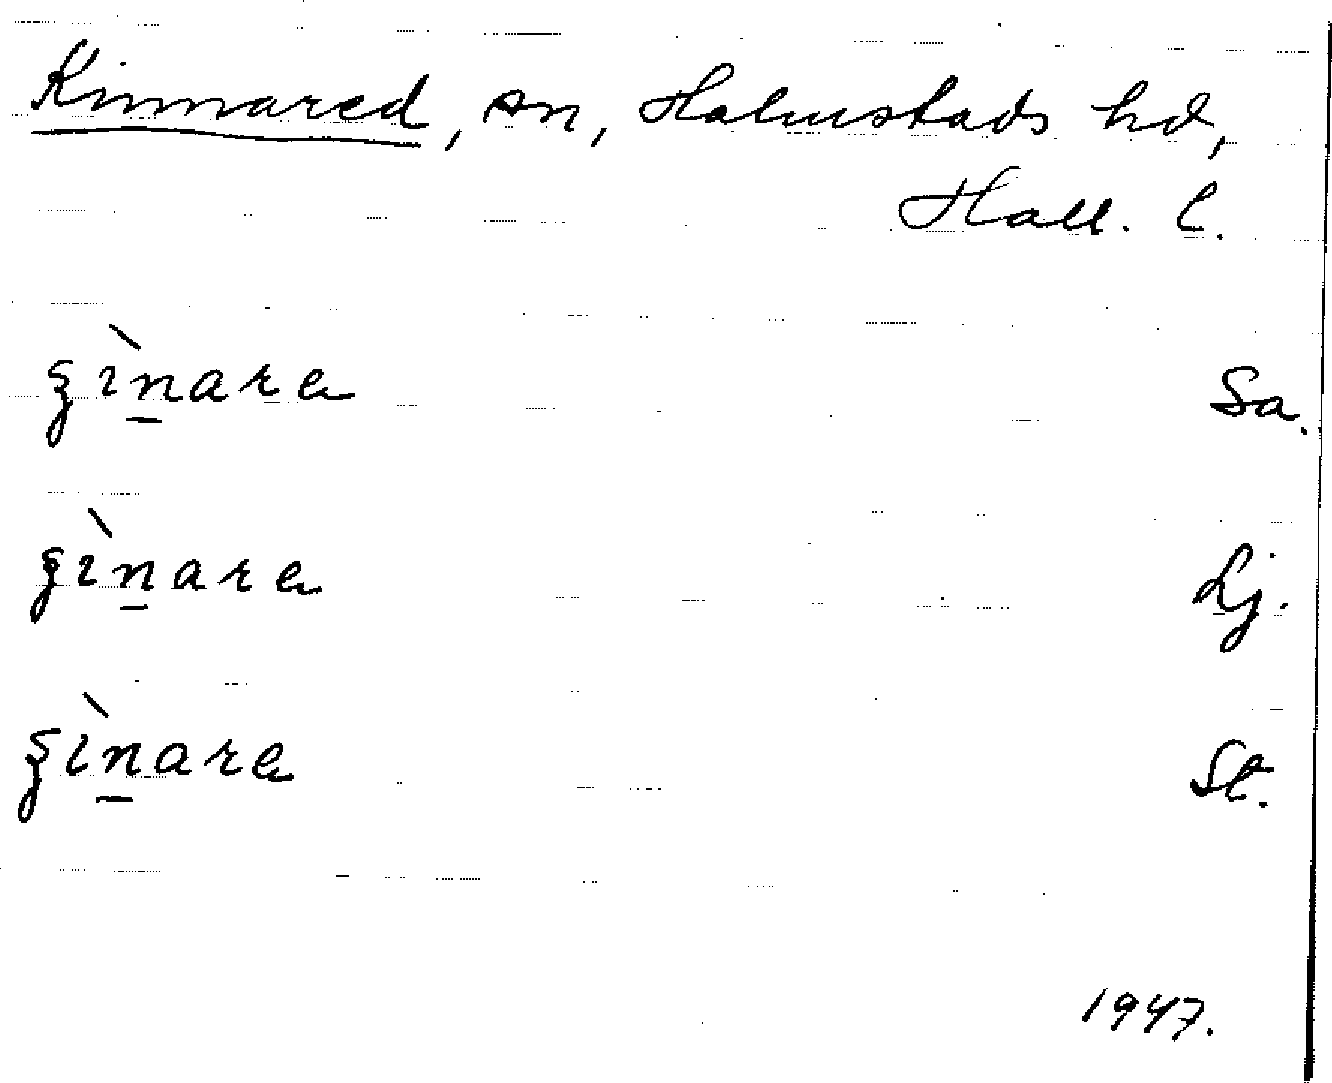 Kinnared, sn, Halmstads hd,
Hall. l.
ʒìn̲ara Sa.
ʒìn̲ara Lj.
ʒìn̲ara St.
1947.